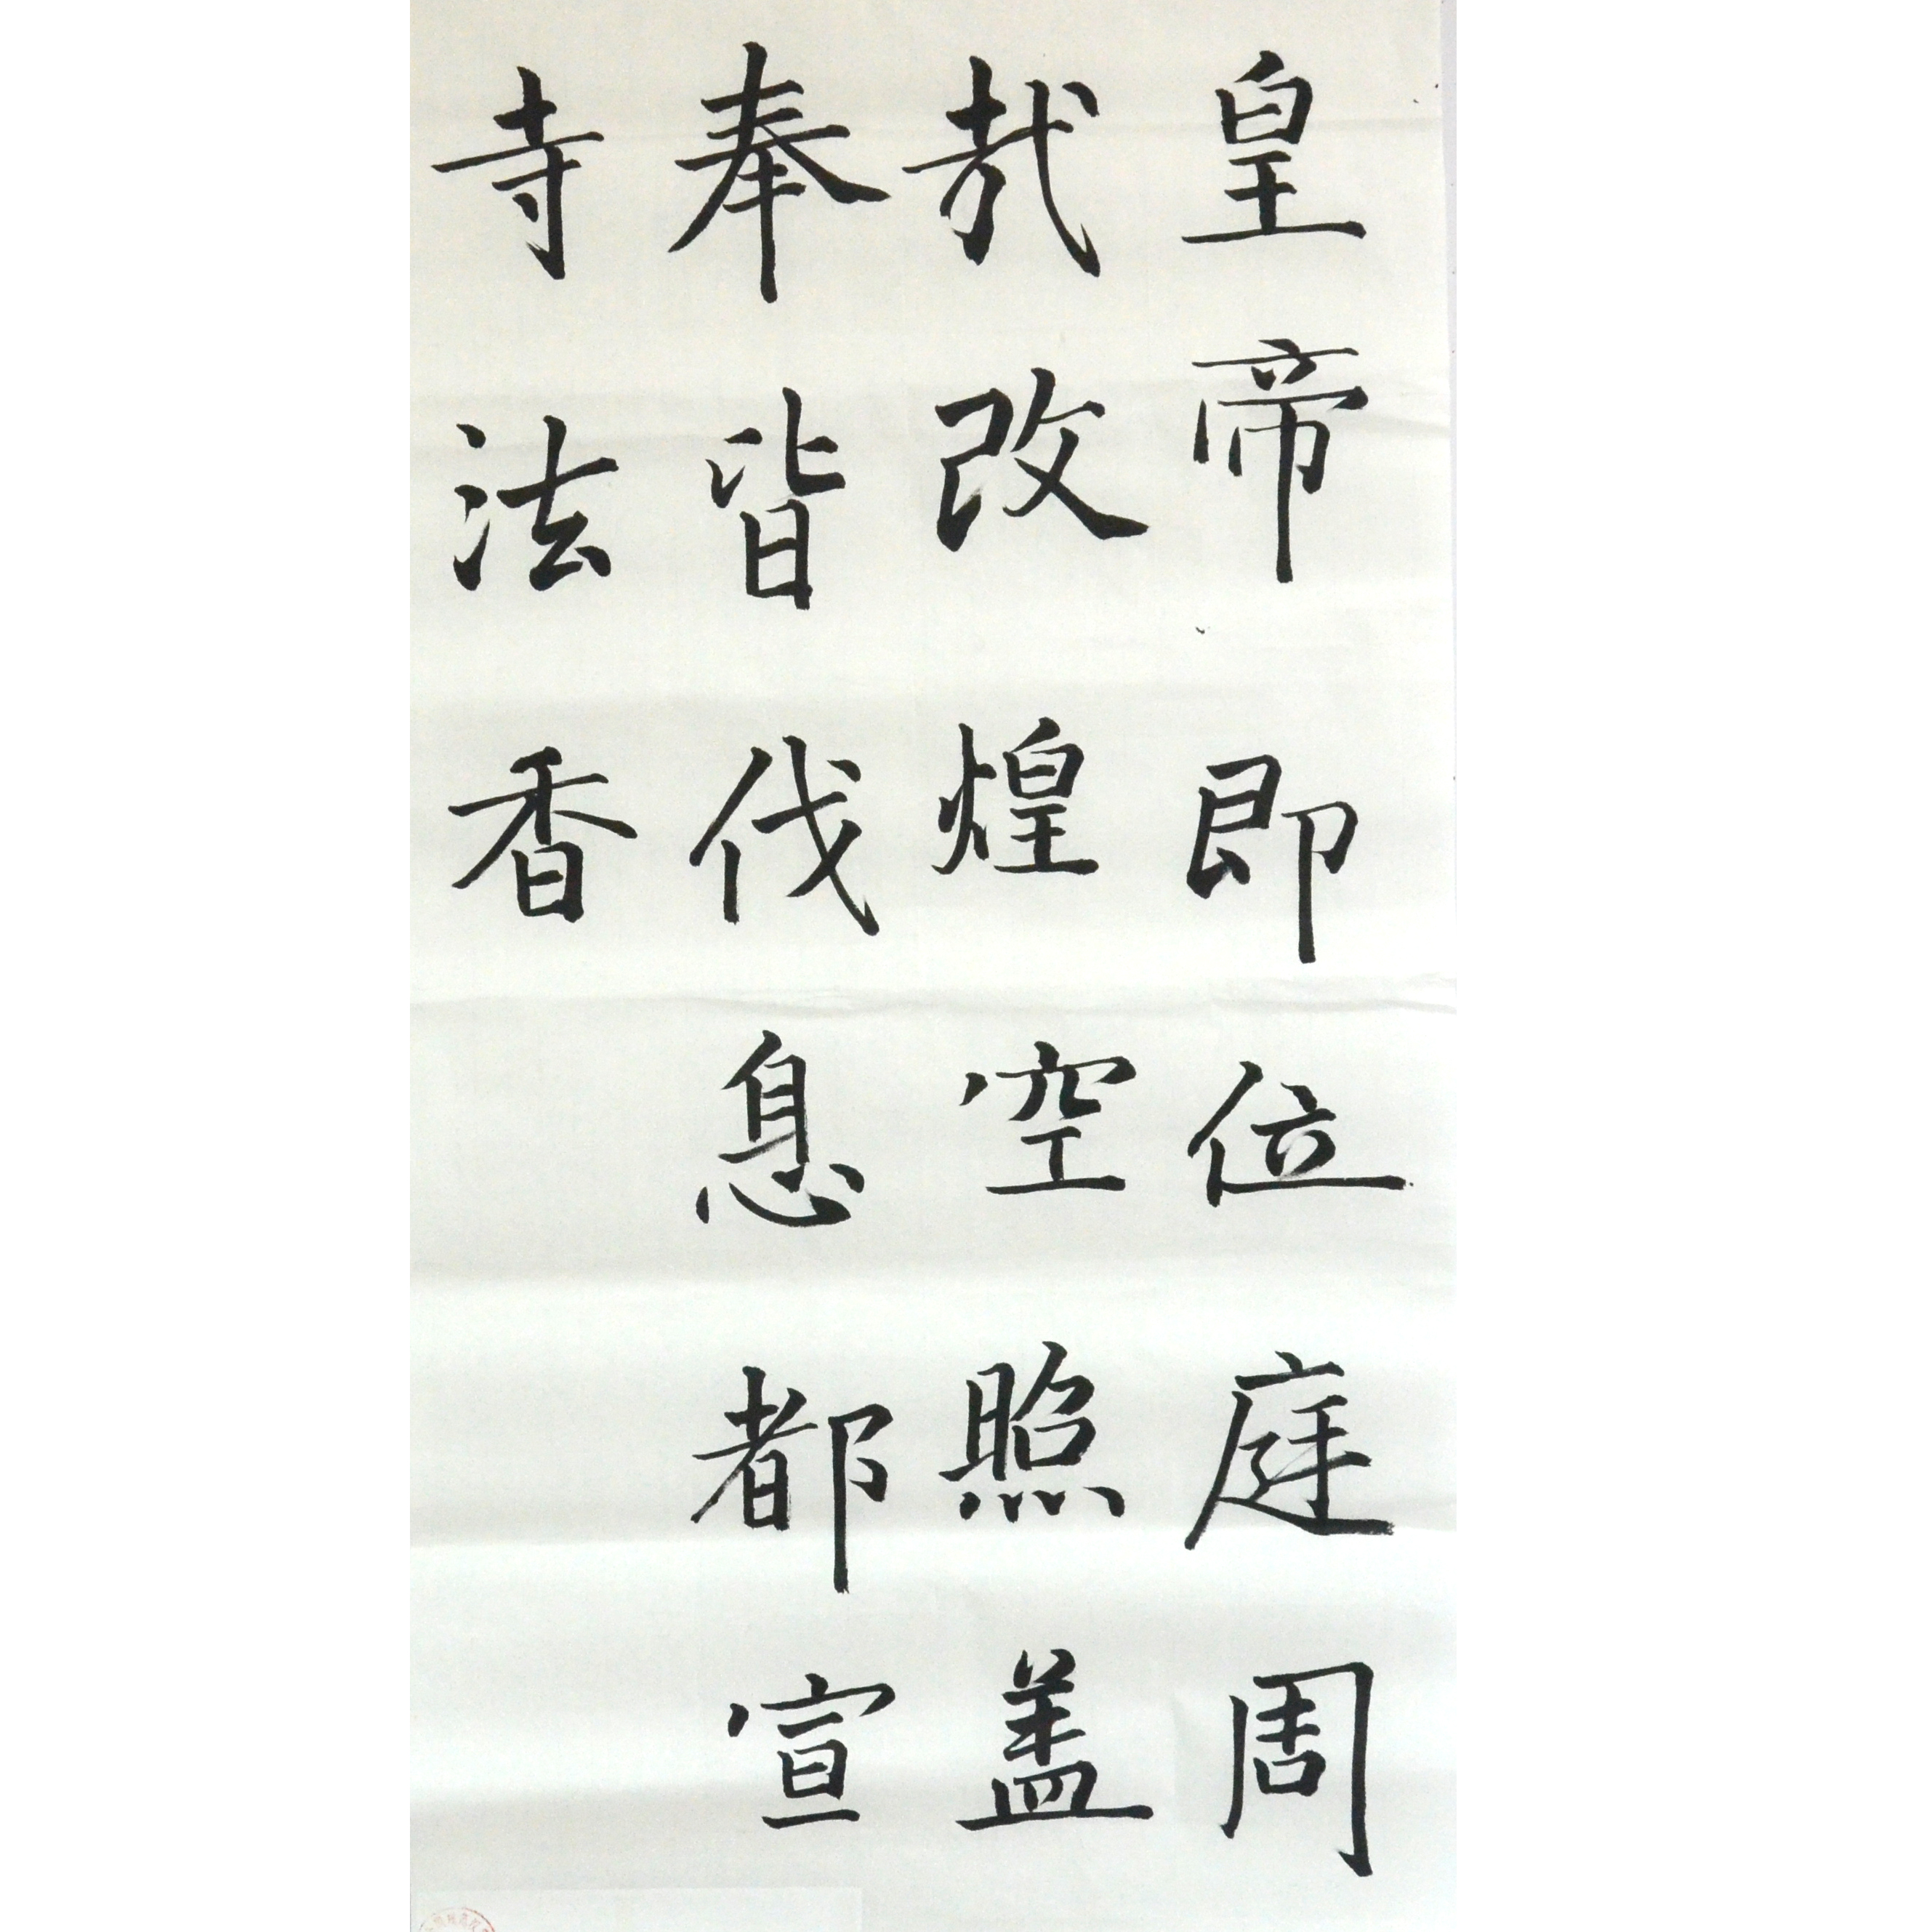 皇帝即位庭周
改煌空照盖
奉皆伐息都宣
寺法香